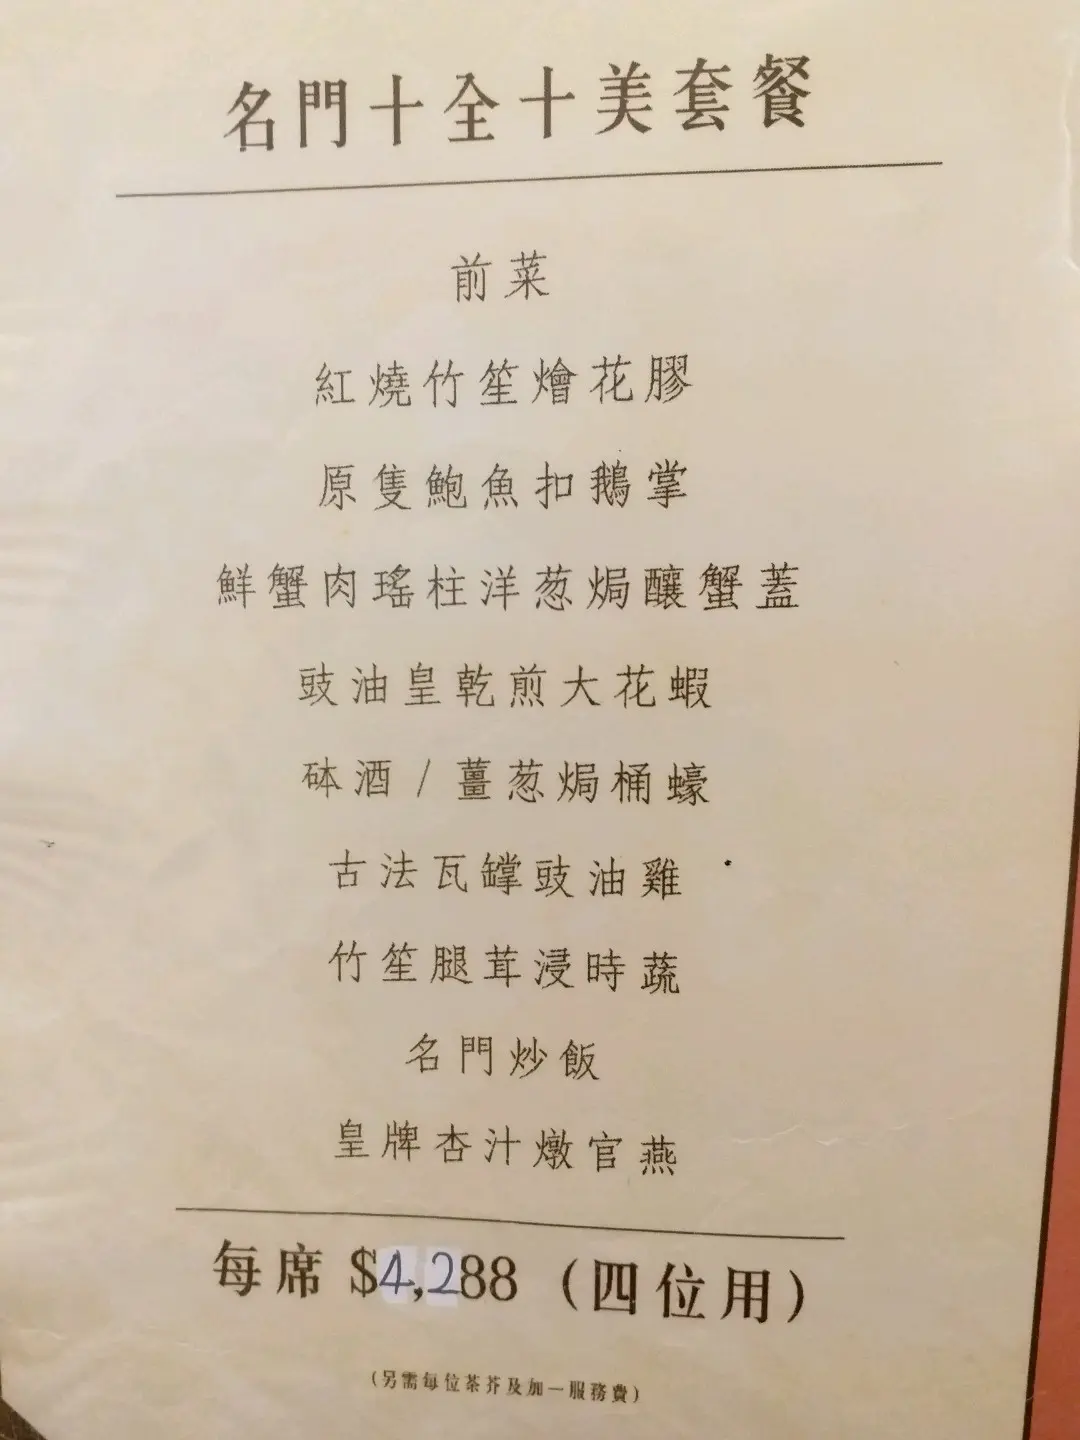 名門十全十美套餐
前菜
紅燒竹笙燴花膠
原隻鮑魚扣鵝掌
鮮蟹肉瑤柱洋葱焗釀蟹蓋
豉油皇乾煎大花蝦
砵酒 / 薑葱焗桶蠔
古法瓦罉豉油雞
竹笙腿茸浸時蔬
名門炒飯
皇牌杏汁燉官燕
每席 $4,288 (四位用)
(另需每位茶芥及加一服務費)